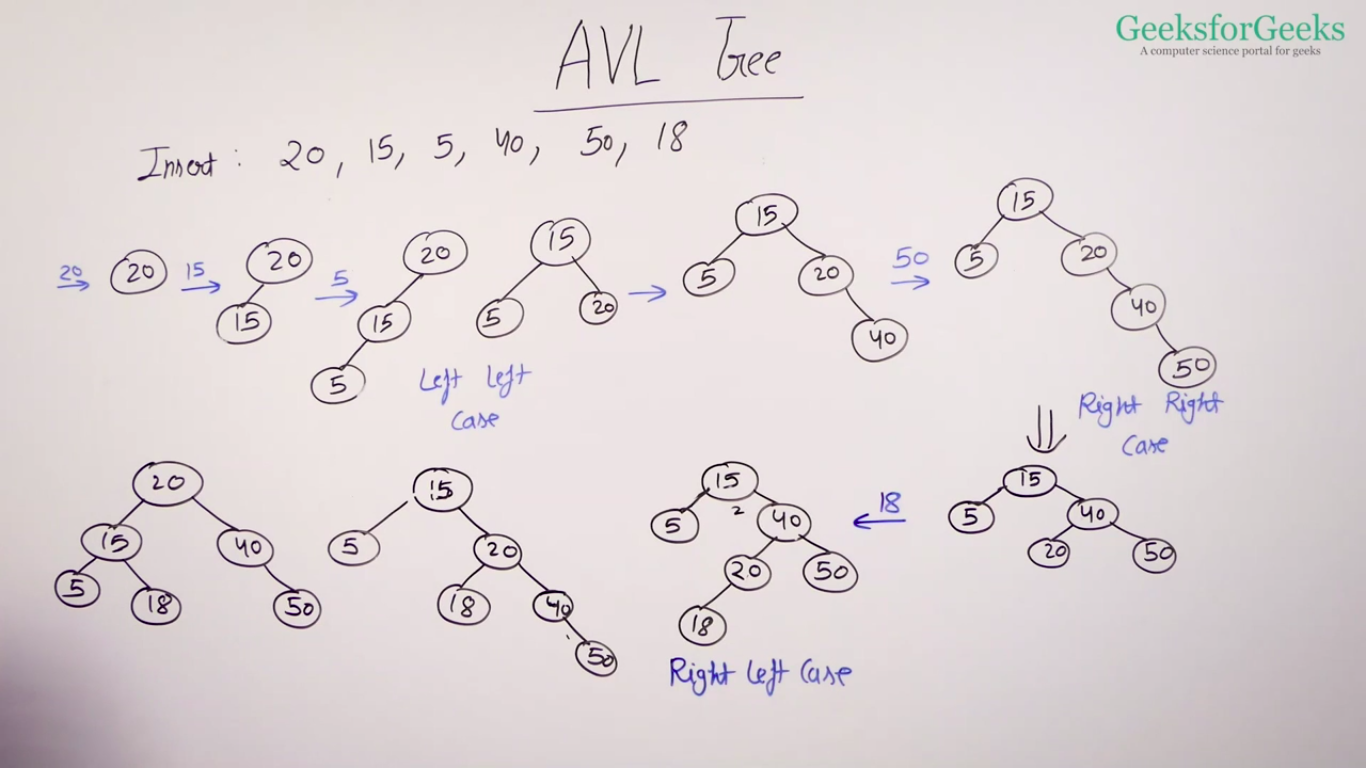 GeeksforGeeks
A computer science portal for geeks
AVL Tree
Insert : 20, 15, 5, 40, 50, 18
20 20 15 20 15 5 20 15 5
15 5 20
Left Left
Case
15 5 20 40
50 15 5 20 40 50
Right Right
Case
15 5 40 20 50
18
15 2 5 40 20 50 18
Right Left Case
15 5 20 18 40 50
20 15 40 5 18 50